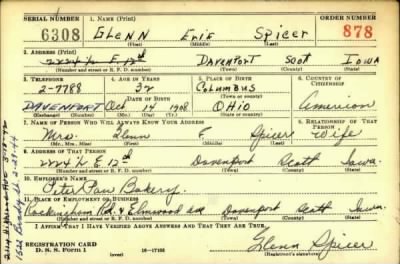 SERIAL NUMBER 1. NAME (Print) ORDER NUMBER
6308 GLENN Eric Spicer 878
(First) (Middle) (Last)
2. ADDRESS (Print)
2224 ½ E 12th Davenport Scott Iowa
(Number and street or R. F. D. number) (Town) (County) (State)
3. TELEPHONE 4. AGE IN YEARS 5. PLACE OF BIRTH 6. COUNTRY OF CITIZENSHIP
2-7788 32 Columbus
DATE OF BIRTH (Town or county)
DAVENPORT Oct 14 1908 OHIO American
(Exchange) (Number) (Mo.) (Day) (Yr.) (State or country)
7. NAME OF PERSON WHO WILL ALWAYS KNOW YOUR ADDRESS 8. RELATIONSHIP OF THAT PERSON
Mrs. Glenn E. Spicer Wife
(Mr., Mrs., Miss) (First) (Middle) (Last)
9. ADDRESS OF THAT PERSON
2224 ½ E 12th Davenport Scott Iowa.
(Number and street or R. F. D. number) (Town) (County) (State)
10. EMPLOYER'S NAME
Peter Pan Bakery.
11. PLACE OF EMPLOYMENT OR BUSINESS
Rockingham Rd. & Elmwood ave Davenport Scott Iowa.
(Number and street or R. F. D. number) (Town) (County) (State)
I AFFIRM THAT I HAVE VERIFIED ABOVE ANSWERS AND THAT THEY ARE TRUE.
REGISTRATION CARD
D. S. S. Form 1 (over) 16-17105 Glenn Spicer
(Registrant's signature)